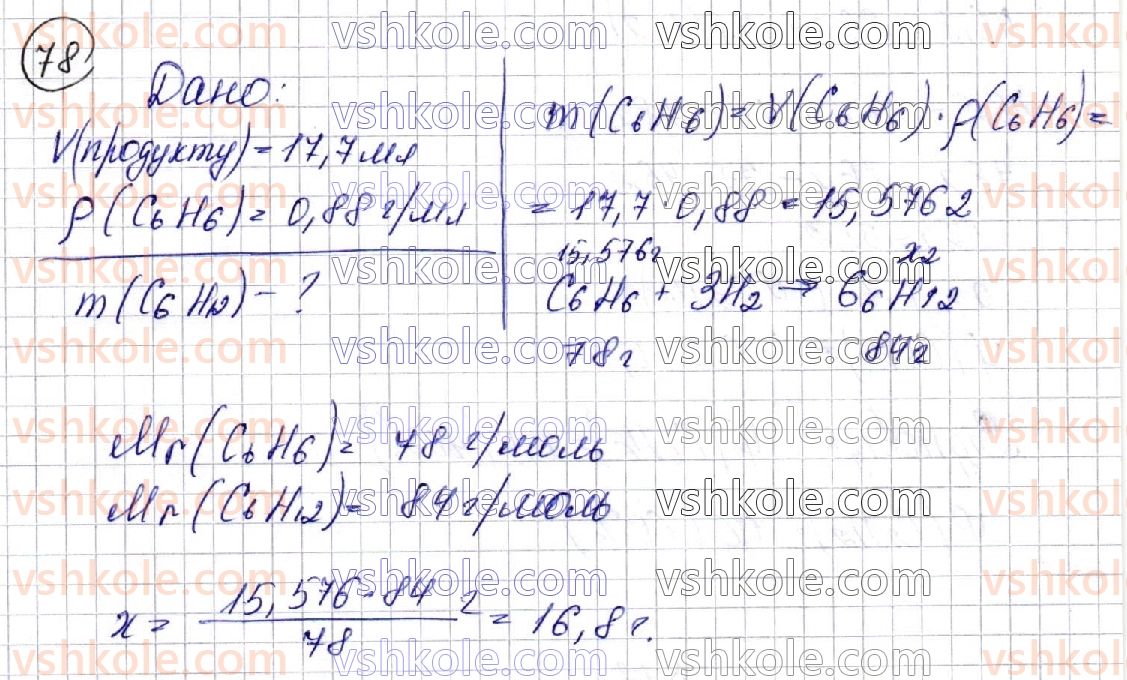 78
Дано:
V(продукту) = 17,7 мл
ρ(C6H6) = 0,88 г/мл
m(C6H12) - ?
m(C6H6) = V(C6H6) · ρ(C6H6) =
= 17,7 · 0,88 = 15,576 г
15,576г xг
C6H6 + 3H2 → C6H12
78г 84г
Mr(C6H6) = 78 г/моль
Mr(C6H12) = 84 г/моль
x = 15,576 · 84 / 78 г = 16,8 г.
vshkole.com